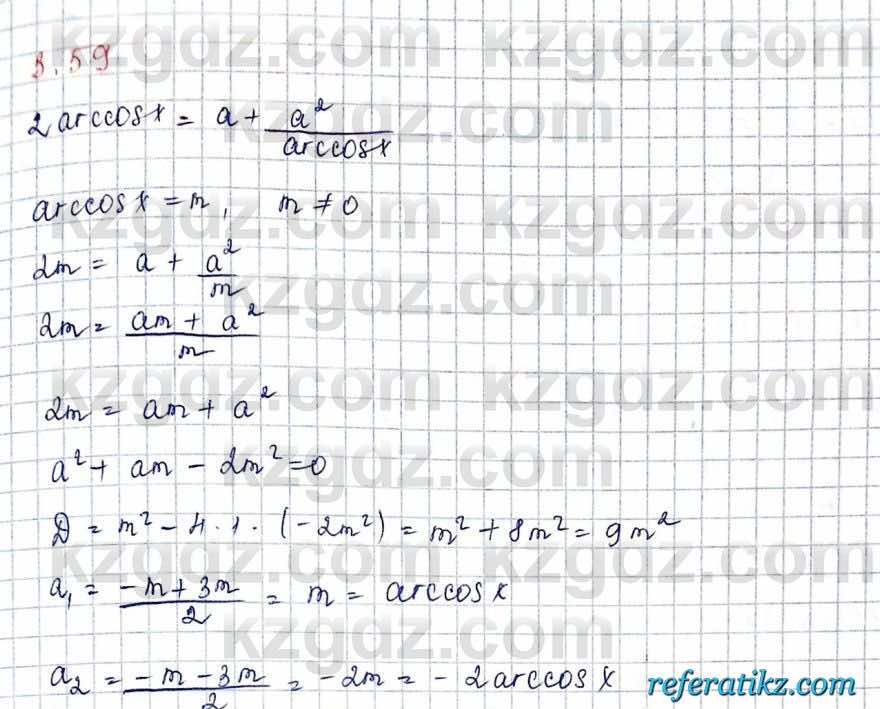 3.59
2 arccosx = a + a²/arccosx
arccosx = m, m ≠ 0
2m = a + a²/m
2m = (am + a²)/m
2m = am + a²
a² + am - 2m² = 0
D = m² - 4 · 1 · (-2m²) = m² + 8m² = 9m²
a₁ = (-m + 3m)/2 = m = arccosx
a₂ = (-m - 3m)/2 = -2m = -2arccosx
referatikz.com
kzgdz.com